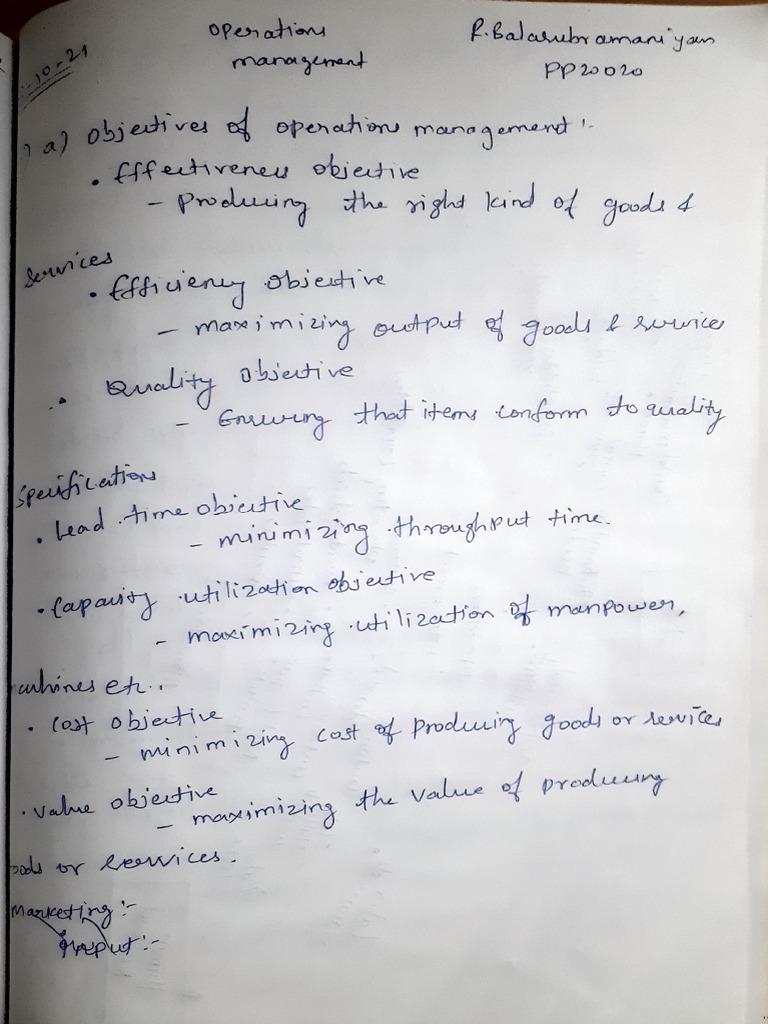 Operations
management
R.Balasubramaniyan
PP20020
-10-21
a) Objectives of operations management :-
• Effectiveness objective
- Producing the right kind of goods &
services
• Efficiency objective
- maximizing output of goods & services
• Quality objective
- Ensuring that items conform to quality
specifications
• Lead time objective
- minimizing throughput time.
• Capacity utilization objective
- maximizing utilization of manpower,
achines etc..
• Cost objective
- minimizing cost of producing goods or services
• value objective
- maximizing the value of producing
oods or services.
Marketing :-
Input :-